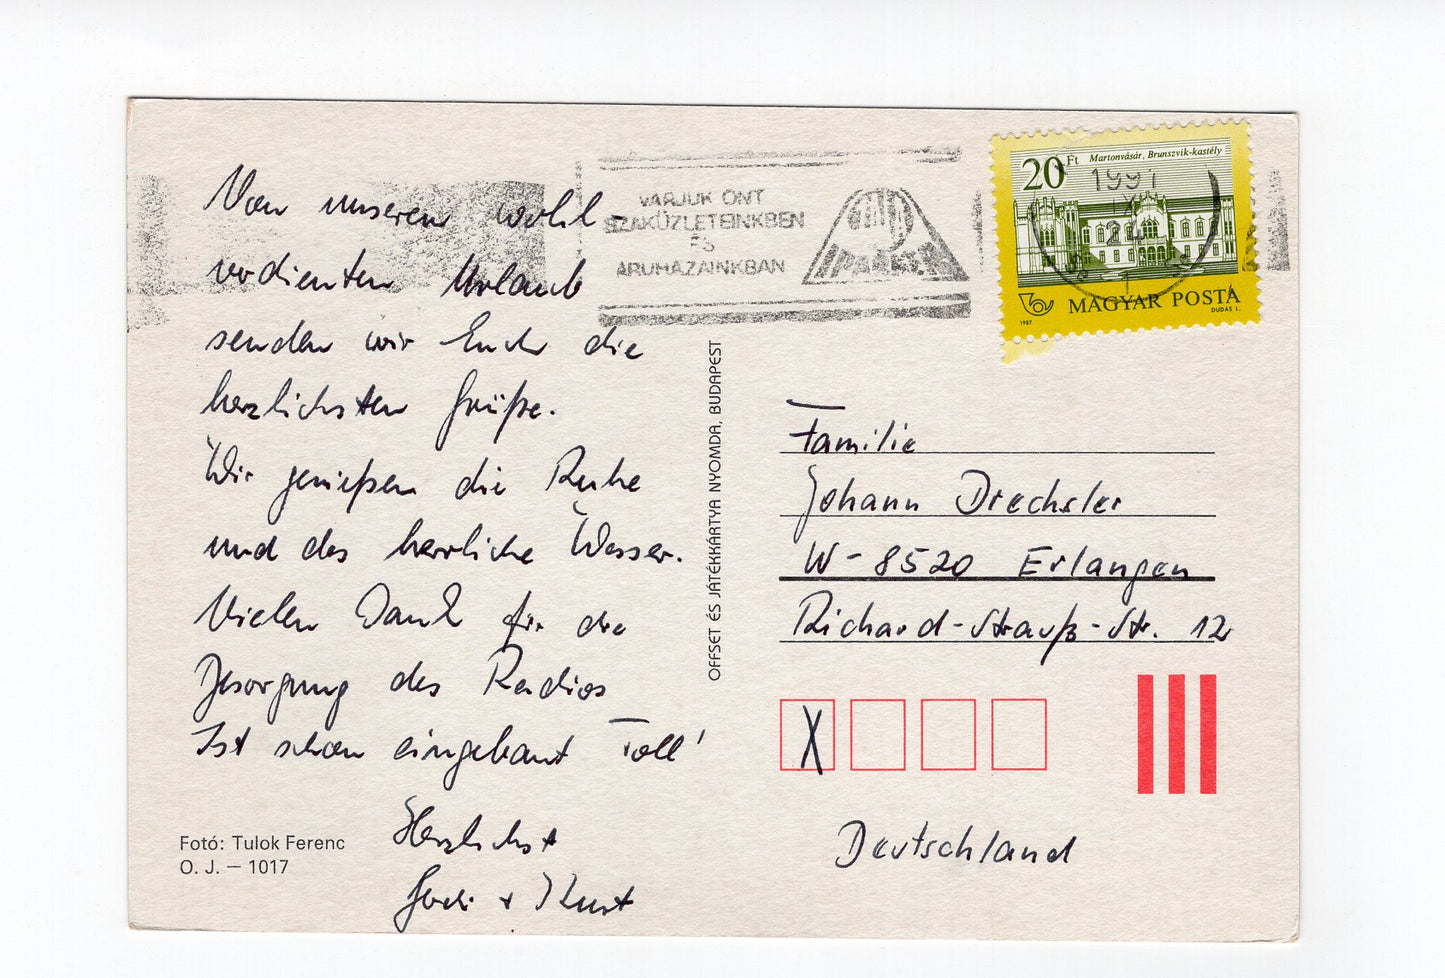 Von unserem wohl-
verdienten Urlaub
senden wir Euch die
herzlichsten Grüße.
Wir genießen die Ruhe
und das herrliche Wasser.
Vielen Dank für die
Besorgung des Radios
Ist schon eingebaut Toll!
Herzlichst
+ Kurt
Fotó: Tulok Ferenc
O. J. – 1017
OFFSET ÉS JÁTÉKKÁRTYA NYOMDA, BUDAPEST
VÁRJUK ÖNT
SZAKÜZLETEINKBEN
ÉS
ÁRUHÁZAINKBAN
IPARKER
20 Ft Martonvásár, Brunszvik-kastély
1991
IX
24
MAGYAR POSTA
1987 DUDÁS L.
Familie
Johann Drechsler
W-8520 Erlangen
Richard-Strauß-Str. 12
X
Deutschland